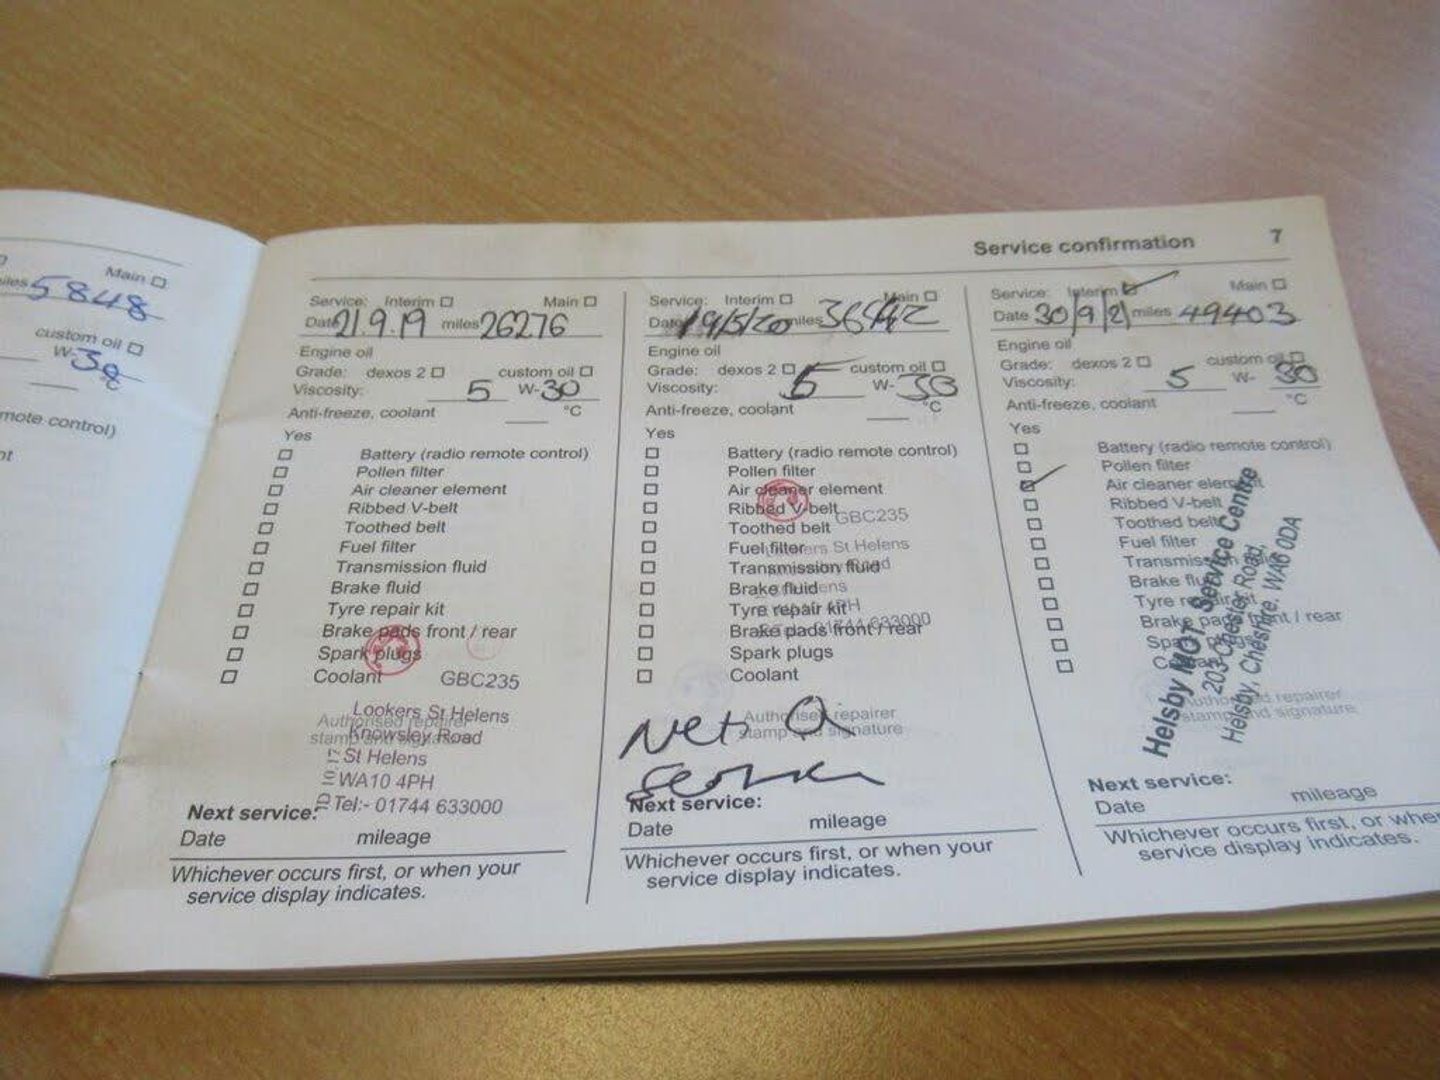 Main
miles 5848
custom oil
W-30
Service confirmation 7
Service: Interim Main
Date 21.9.19 miles 26276
Engine oil
Grade: dexos 2 custom oil
Viscosity: 5 W-30
Anti-freeze, coolant °C
Yes
Battery (radio remote control)
Pollen filter
Air cleaner element
Ribbed V-belt
Toothed belt
Fuel filter
Transmission fluid
Brake fluid
Tyre repair kit
Brake pads front / rear
Spark plugs
Coolant
GBC235
Authorised repairer
stamp and signature
Lookers St Helens
Knowsley Road
St Helens
WA10 4PH
Tel:- 01744 633000
Next service:
Date mileage
Whichever occurs first, or when your
service display indicates.
Service: Interim Main
Date 19/5/20 miles
Engine oil
Grade: dexos 2 custom oil
Viscosity: 5 W-30
Anti-freeze, coolant °C
Yes
Battery (radio remote control)
Pollen filter
Air cleaner element
Ribbed V-belt
GBC235
Toothed belt
Fuel filter
Transmission fluid
Brake fluid
Tyre repair kit
Brake pads front / rear
Spark plugs
Coolant
Lookers St Helens
Knowsley Road
St Helens
WA10 4PH
Tel:- 01744 633000
Authorised repairer
stamp and signature
Next service:
Date mileage
Whichever occurs first, or when your
service display indicates.
Service: Interim Main
Date 30/9/21 miles 49403
Engine oil
Grade: dexos 2 custom oil
Viscosity: 5 W-30
Anti-freeze, coolant °C
Yes
Battery (radio remote control)
Pollen filter
Air cleaner element
Ribbed V-belt
Toothed belt
Fuel filter
Transmission fluid
Brake fluid
Tyre repair kit
Brake pads front / rear
Spark plugs
Coolant
Helsby MOT Service Centre
203 Chester Road,
Helsby, Cheshire, WA6 0DA
Authorised repairer
stamp and signature
Next service:
Date mileage
Whichever occurs first, or when
service display indicates.